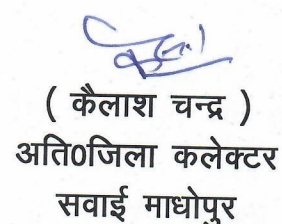 ( कैलाश चन्द्र )
अति0जिला कलेक्टर
सवाई माधोपुर